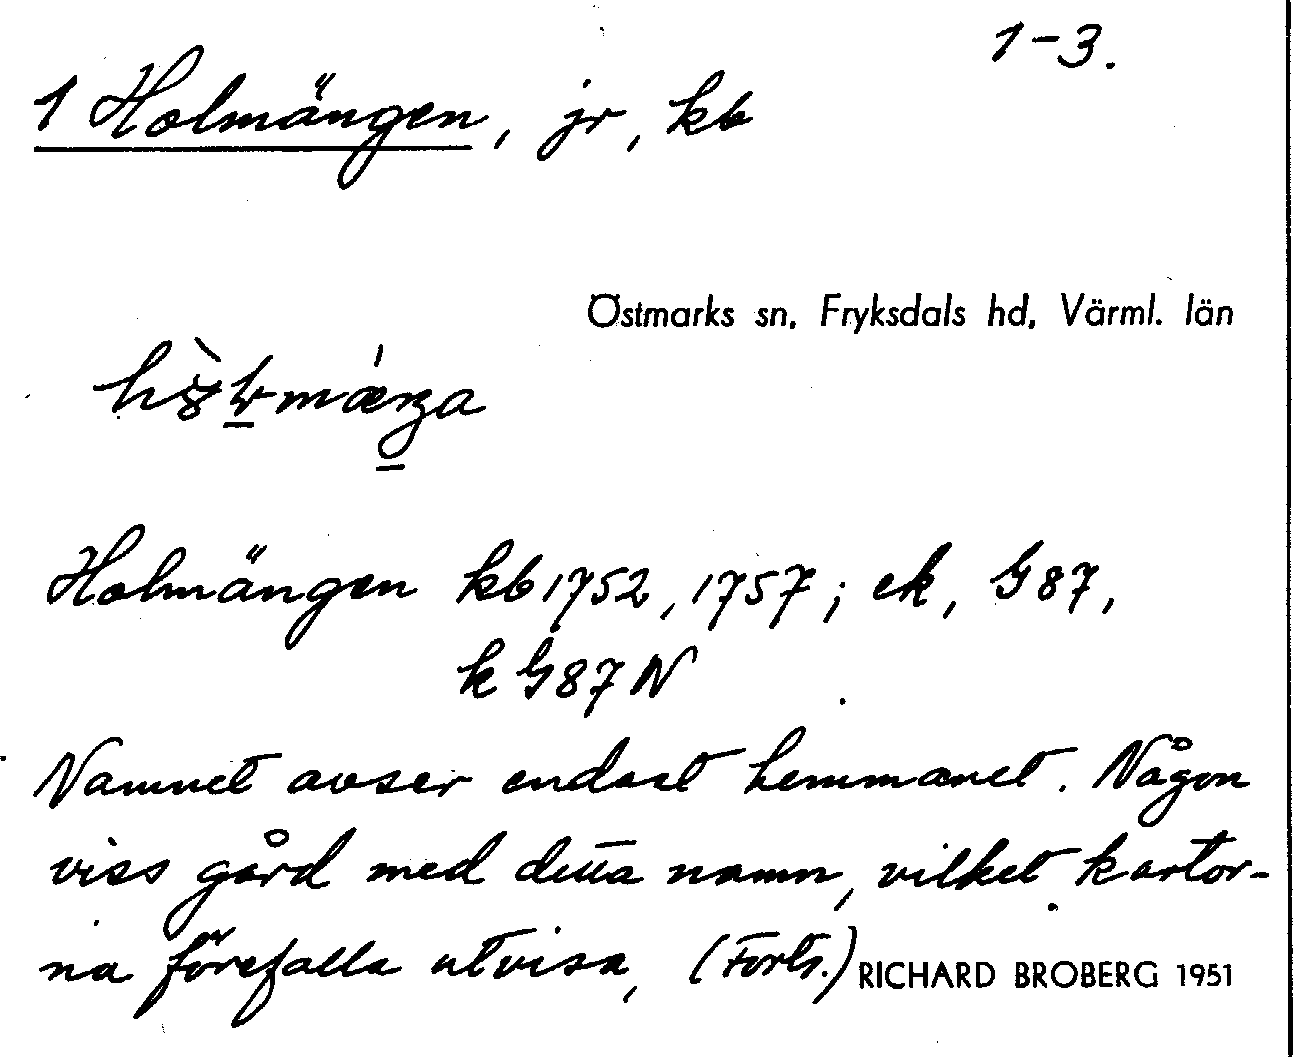 1-3.
1 Holmängen, jr, kb
Östmarks sn, Fryksdals hd, Värml. län
Holmängen kb 1752, 1757; ek, G87,
k G87 N
Namnet avser endast hemmanet. Någon
viss gård med detta namn, vilket kartor-
na förefalla utvisa, (Forts.)
RICHARD BROBERG 1951